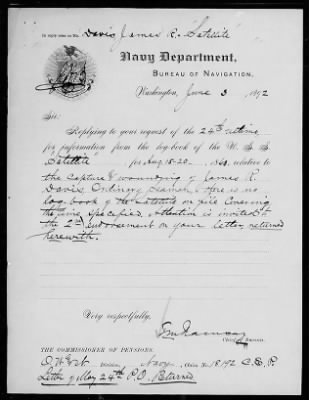 In reply refer to No.
Davis, James R. "Satellite"
Navy Department,
Bureau of Navigation,
Washington, June 3 1892
Sir:
Replying to your request of the 24th ultimo
for information from the log-book of the U. S. S.
"Satellite" for Aug. 18-20 1863, relative to
the capture & wounding of James R.
Davis, Ordinary Seaman, there is no
log book of the Satellite on file covering
the time specified. Attention is invited to
the 2nd endorsement on your letter, returned
herewith.
Very respectfully,
Chief of Bureau.
THE COMMISSIONER OF PENSIONS.
Division, Navy Claim No. 18192
Letter of May 24th P.O. Returned